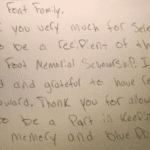 Foat Family,
you very much for Sele
to be a recipient of th
Foat Memorial Scholarship! I
d and grateful to have re
award. Thank you for allow
to be a Part in Keepi
memory and blue